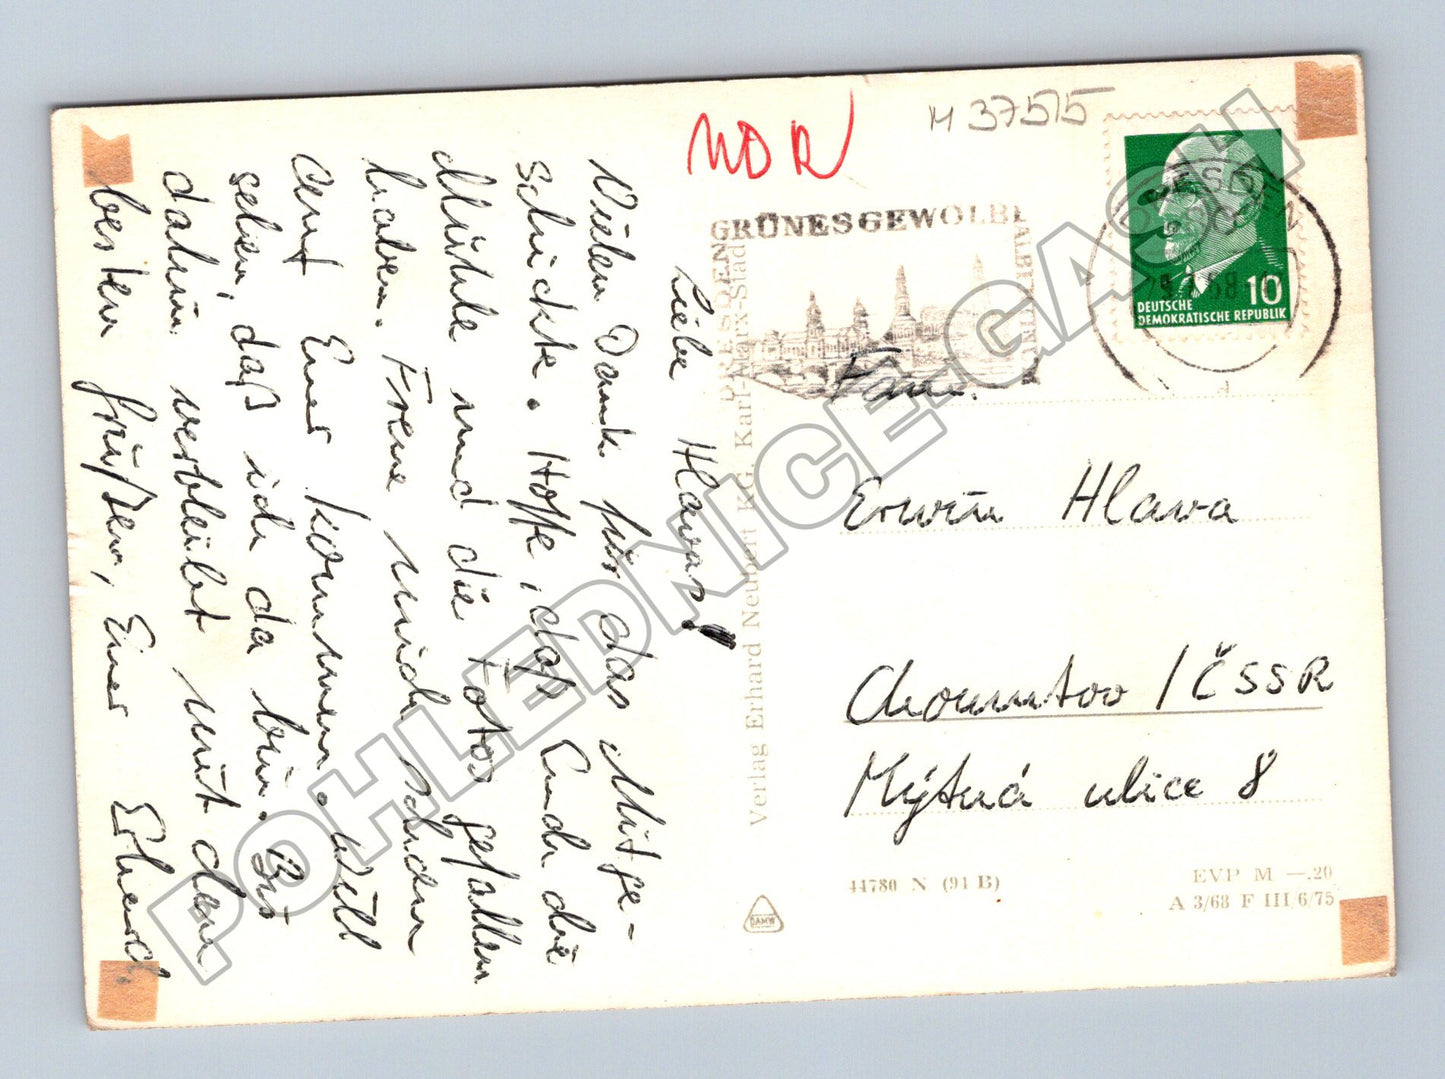 NDR
M 37515
GRÜNES GEWÖLBE
DRESDEN
ALBERTINUM
DRESDEN
DEUTSCHE
DEMOKRATISCHE REPUBLIK
10
Liebe Hlavas!
Vielen Dank für das Mitge-
schickte. Hoffe, daß Euch die
Mühle und die Fotos gefallen
haben. Freue mich schon
Euer kommen. Will
sehen, daß ich da bin. Bis
dahin verbleibt mit den
besten Grüßen, Euer Erhard.
Verlag Erhard Neubert KG, Karl-Marx-Stadt
Fam.
Erwin Hlava
Chomutov / ČSSR
Mýtná ulice 8
44780 N (94 B)
EVP M —.20
A 3/68 F III/6/75
DAMW
POHLEDNICE-GASH